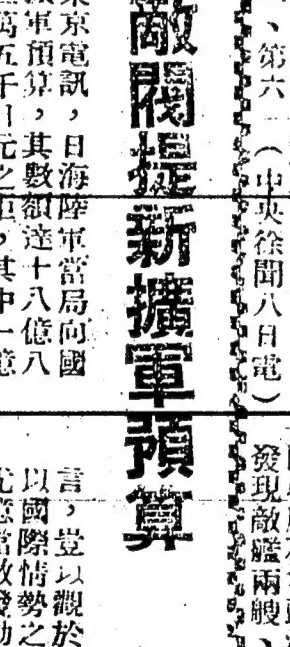 、第六一（中央徐聞八日電）
發現敵艦兩艘、
敵閥提新擴軍預算
東京電訊，日海陸軍當局向國
軍預算，其數額達十八億八
萬五千
元之
，其中一億
言，豈以觀於
以國際情勢之